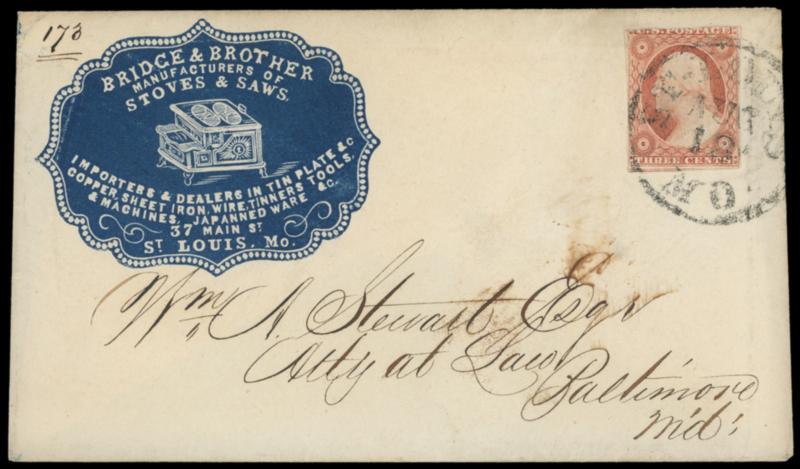 173
BRIDGE & BROTHER
MANUFACTURERS OF
STOVES & SAWS,
IMPORTERS & DEALERS IN TIN PLATE &C
COPPER, SHEET IRON, WIRE, TINNERS TOOLS,
& MACHINES, JAPANNED WARE &C.
37 MAIN ST
ST LOUIS, Mo.
U.S. POSTAGE
THREE CENTS
MO.
Wm A. Stewart Esqr
Atty at Law
Baltimore
Md